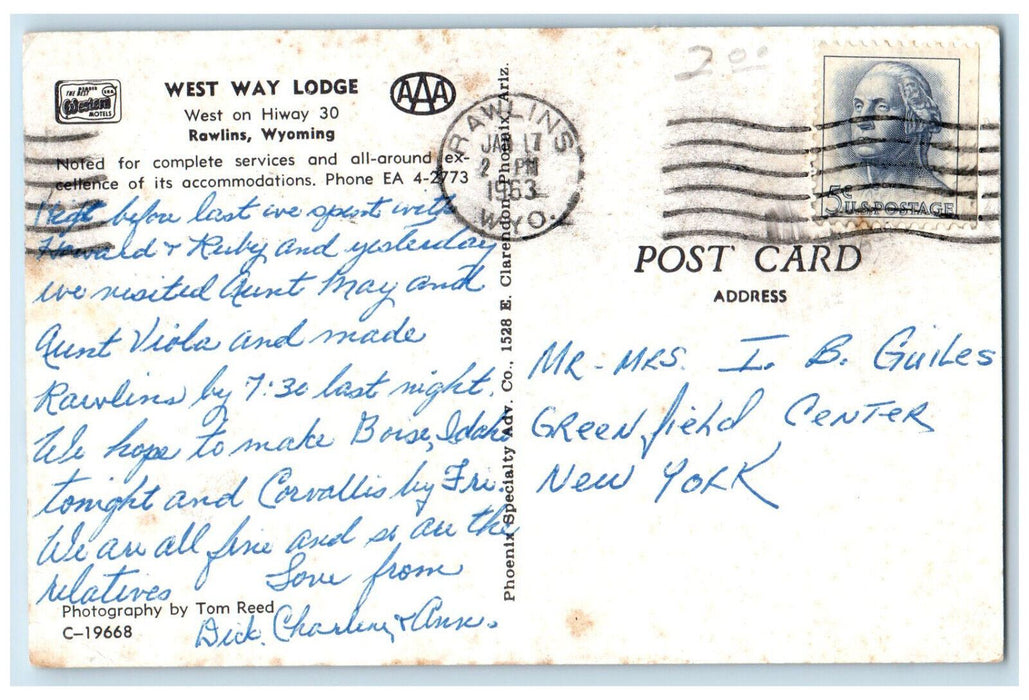 WEST WAY LODGE
West on Hiway 30
Rawlins, Wyoming
Noted for complete services and all-around ex-
cellence of its accommodations. Phone EA 4-2773
Western
MOTELS
AAA
Night before last we spent with
Howard & Ruby and yesterday
we visited Aunt May and
Aunt Viola and made
Rawlins by 7:30 last night.
We hope to make Boise, Idaho
tonight and Corvallis by Fri.
We are all fine and so are the
relatives Love from
Dick, Charlene, & Ann.
Photography by Tom Reed
C-19668
Phoenix Specialty Adv. Co., 1528 E. Clarendon, Phoenix, Ariz.
RAWLINS
JAN 17
2 PM
1963
WYO.
2.00
5¢
U.S. POSTAGE
POST CARD
ADDRESS
MR-MRS. I. B. GUILES
GREENfield CENTER
NEW YORK